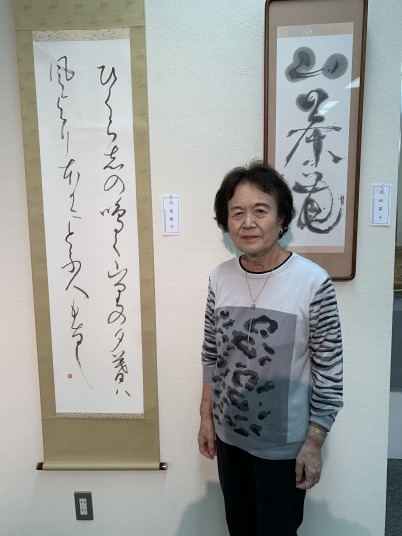 ひくら志の鳴く山里の夕暮ハ
風よりほかにとふ人もなし
山茶花